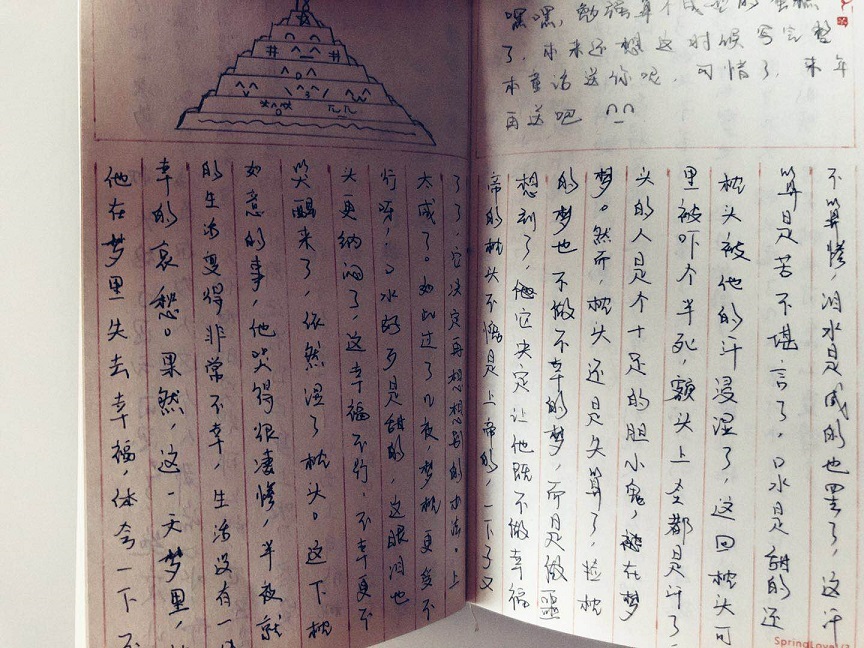 嘿嘿，勉强算个成型的蛋糕
了，本来还想这时候写完整
本童话送你呢，可惜了，来年
再送吧
不算惨，泪水是咸的也罢了，这汗
算是苦不堪言了，口水是甜的还
枕头被他的汗浸湿了，这回枕头可
里被吓个半死，额头上全都是汗了
头的人是个十足的胆小鬼，被在梦
梦。然而，枕头还是失算了，捡枕
的梦也不做不幸的梦，而是做噩
想到了，它决定让他既不做幸福
帝的枕头不愧是上帝的，一下子又
了了，它决定再想想别的办法。上
太咸了。如此过了几夜，梦枕更受不
行呀，口水好歹是甜的，这眼泪也
头更纳闷了，这幸福不行，不幸更不
哭醒来了，依然湿了枕头。这下枕
如意的事，他哭得很凄惨，半夜就
的生活变得非常不幸，生活没有一
幸的哀愁。果然，这一天梦里，
他在梦里失去幸福，体会一下不
SpringLove